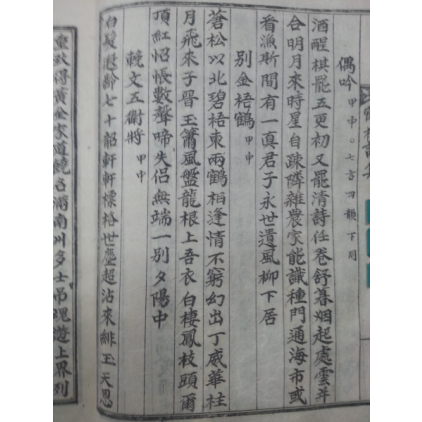 偶吟 甲申○七言四韻下同
酒醒棋罷五更初又罷清詩任卷舒暮烟起處雲羊
合明月來時星自疎隣雖農家能識種門通海市或
看漁斯間有一真君子永世遺風柳下居
別金梧鶴 甲申
蒼松以北碧梧東兩鶴相逢情不窮幻出丁威華柱
月飛來子晉玉簫風盤龍根上吾衣白棲鳳枝頭爾
頂紅怊悵數聲啼失侶無端一別夕陽中
輓文五衛將 甲申
白髮遐齡七十韶軒軒標格世塵超沾來緋玉天恩
重欤得黃金家道饒名溜南州多士吊魂遊上界列